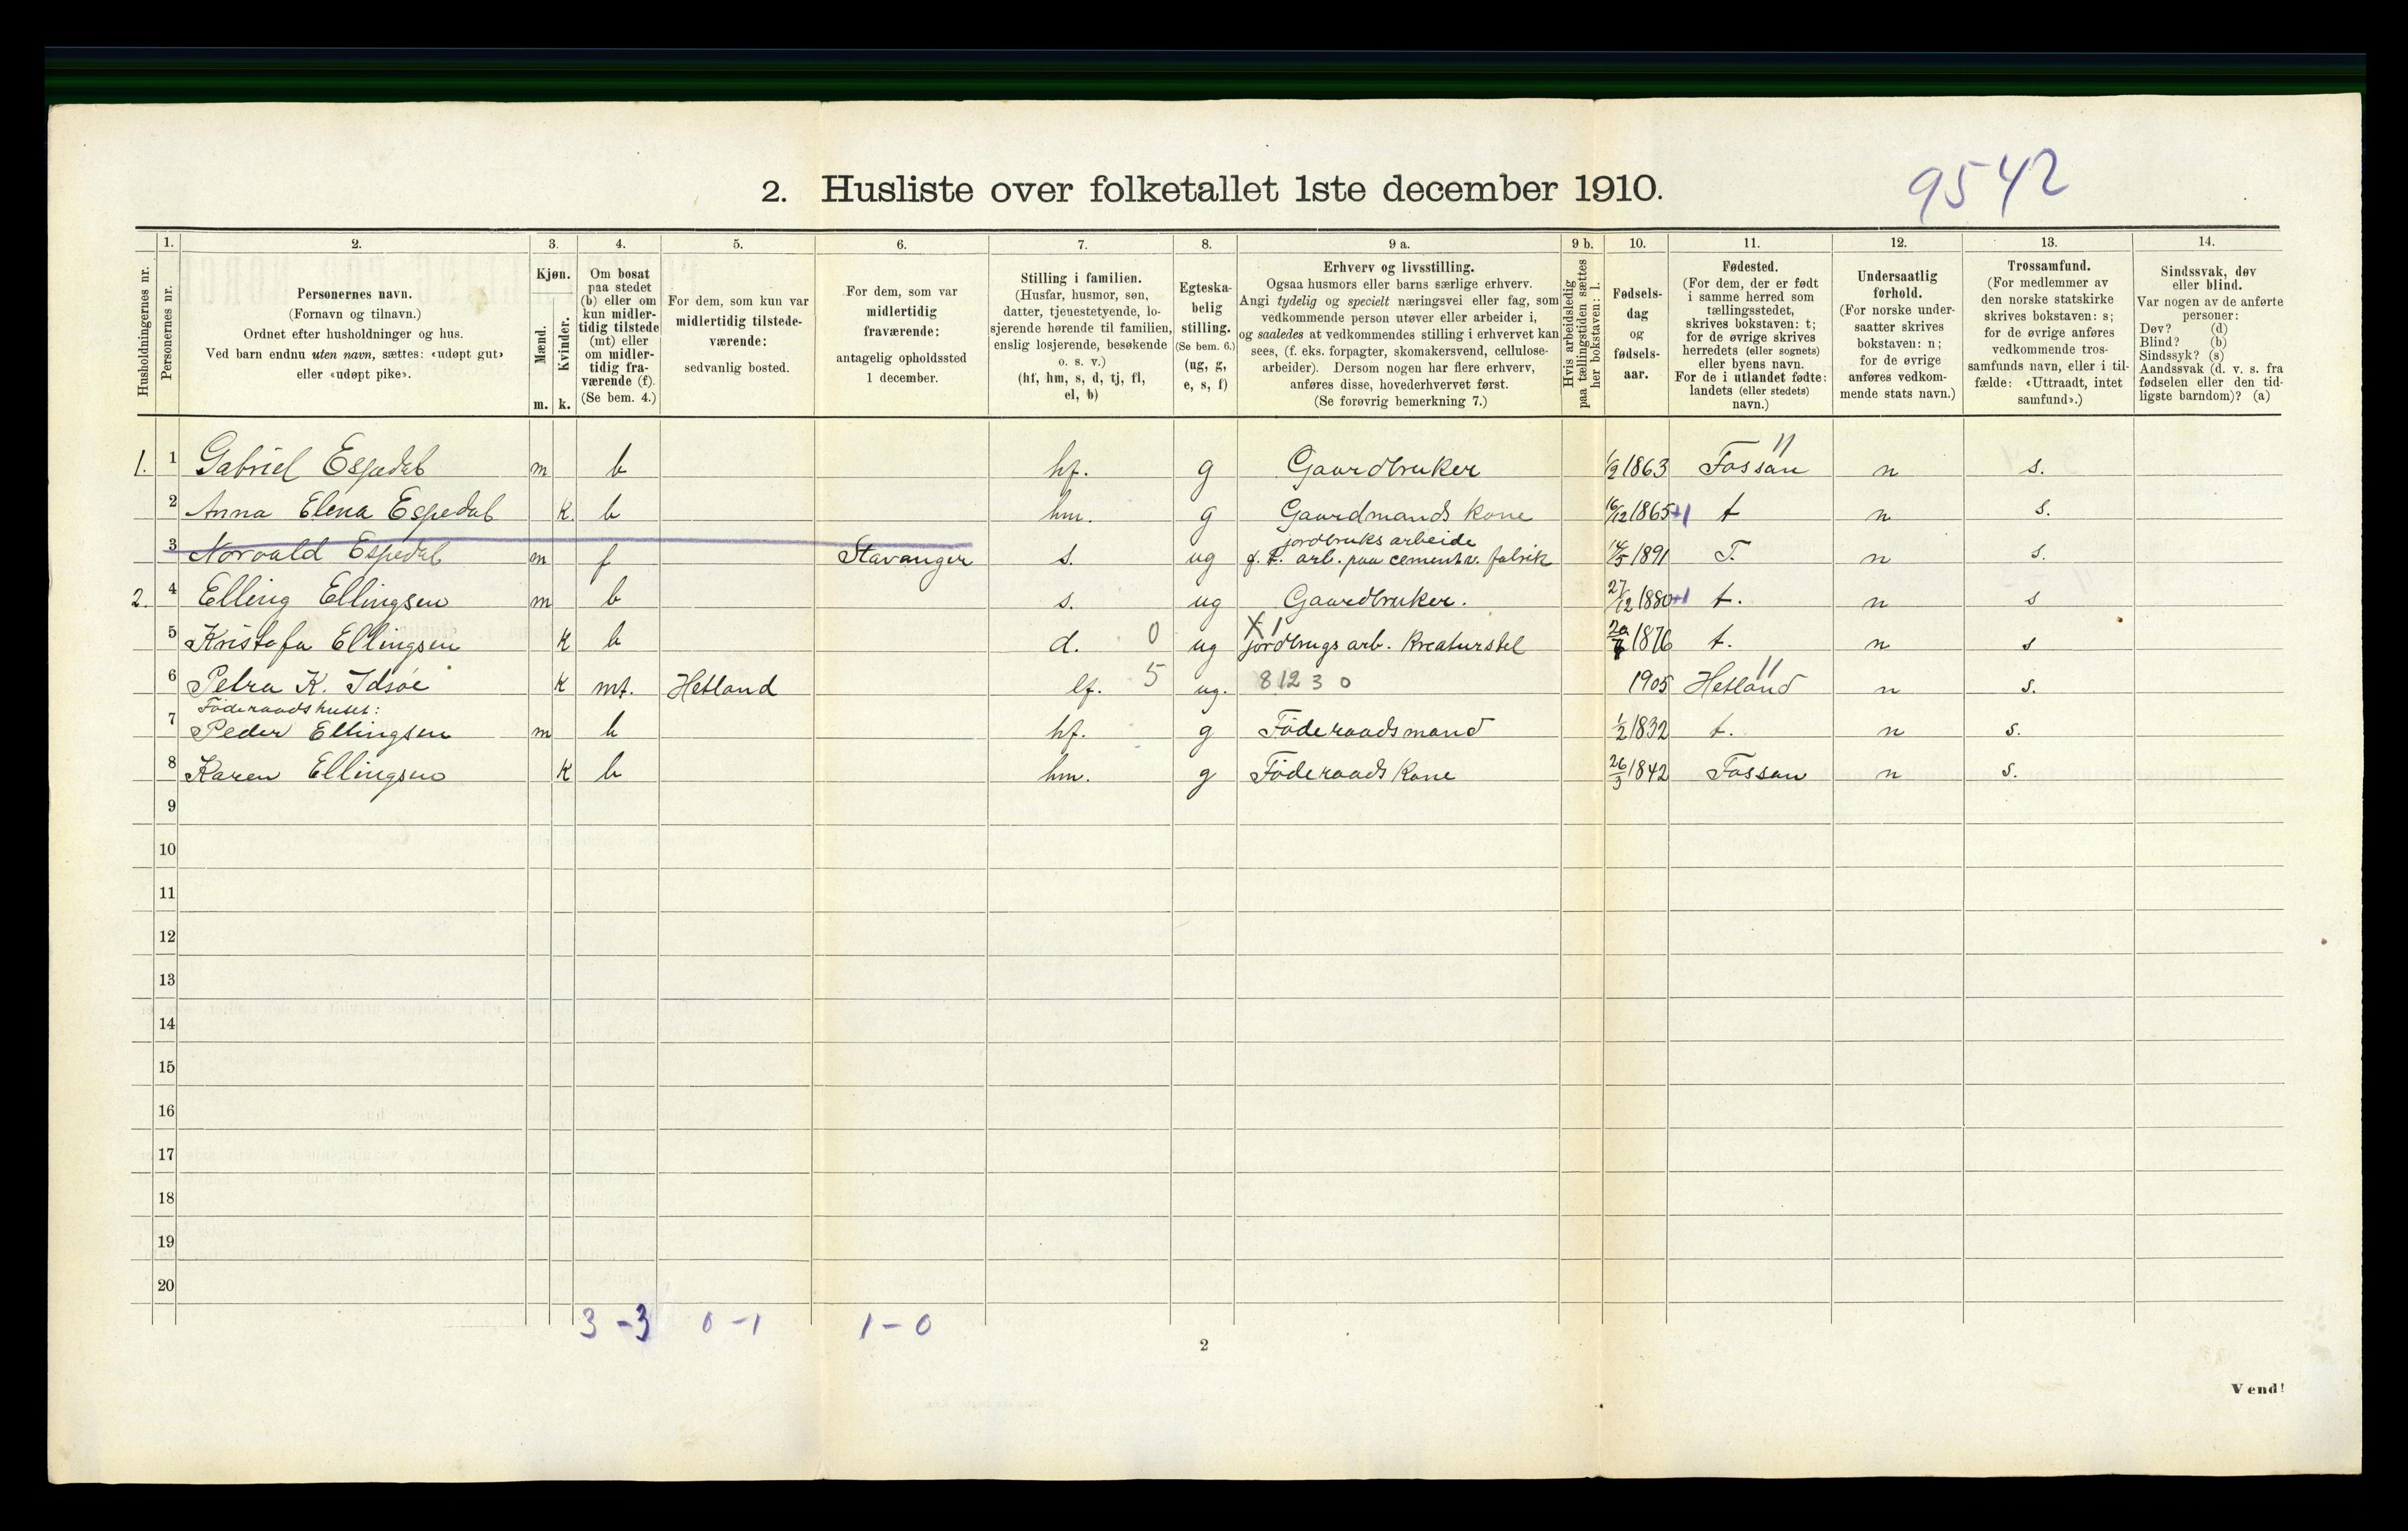 2. Husliste over folketallet 1ste december 1910.
9542
Husholdningernes nr.
1.
Personernes nr.
2.
Personernes navn.
(Fornavn og tilnavn.)
Ordnet efter husholdninger og hus.
Ved barn endnu uten navn, sættes: «udøpt gut»
eller «udøpt pike».
3.
Kjøn.
Mænd.
Kvinder.
m. k.
4.
Om bosat
paa stedet
(b) eller om
kun midler-
tidig tilstede
(mt) eller
om midler-
tidig fra-
værende (f).
(Se bem. 4.)
5.
For dem, som kun var
midlertidig tilstede-
værende:
sedvanlig bosted.
6.
For dem, som var
midlertidig
fraværende:
antagelig opholdssted
1 december.
7.
Stilling i familien.
(Husfar, husmor, søn,
datter, tjenestetyende, lo-
sjerende hørende til familien,
enslig losjerende, besøkende
o. s. v.)
(hf, hm, s, d, tj, fl,
el, b)
8.
Egteska-
belig
stilling.
(Se bem. 6.)
(ug, g,
e, s, f)
9 a.
Erhverv og livsstilling.
Ogsaa husmors eller barns særlige erhverv.
Angi tydelig og specielt næringsvei eller fag, som
vedkommende person utøver eller arbeider i,
og saaledes at vedkommendes stilling i erhvervet kan
sees, (f. eks. forpagter, skomakersvend, cellulose-
arbeider). Dersom nogen har flere erhverv,
anføres disse, hovederhvervet først.
(Se forøvrig bemerkning 7.)
9 b.
Hvis arbeidsledig
paa tællingstiden sættes
her bokstaven: l.
10.
Fødsels-
dag
og
fødsels-
aar.
11.
Fødested.
(For dem, der er født
i samme herred som
tællingsstedet,
skrives bokstaven: t;
for de øvrige skrives
herredets (eller sognets)
eller byens navn.
For de i utlandet fødte:
landets (eller stedets)
navn.)
12.
Undersaatlig
forhold.
(For norske under-
saatter skrives
bokstaven: n;
for de øvrige
anføres vedkom-
mende stats navn.)
13.
Trossamfund.
(For medlemmer av
den norske statskirke
skrives bokstaven: s;
for de øvrige anføres
vedkommende tros-
samfunds navn, eller i til-
fælde: «Uttraadt, intet
samfund».)
14.
Sindssvak, døv
eller blind.
Var nogen av de anførte
personer:
Døv? (d)
Blind? (b)
Sindssyk? (s)
Aandssvak (d. v. s. fra
fødselen eller den tid-
ligste barndom)? (a)
11
1. 1 Gabriel Espedal m b hf. g Gaardbruker 1/2 1863 Fossan n s.
2 Anna Elena Espedal k. b hm. g Gaardmands kone 16/12 1865 +1 t n s.
jordbruks arbeide
3 Norvald Espedal m f Stavanger s. ug f. t. arb. paa cementv. fabrik 14/5 1891 T. n s.
2. 4 Elling Ellingsen m b s. ug Gaardbruker. 27/12 1880 +1 t. n s
X 1
5 Kristofa Ellingsen k b d. 0 ug jordbrugs arb. Kreaturstel 1876 t. n s
11
6 Petra K. Idsøe k mt. Hetland 5 ug. 8 12 3 0 1905 Hetland n s.
Föderaadshuset:
7 Peder Ellingsen m b hf. g Föderaadsmand 1/2 1832 t. n s.
8 Karen Ellingsen k b hm. g Föderaads kone 26/3 1842 Fossan n s.
9
10
11
12
13
14
15
16
17
18
19
20
3 - 3 0 - 1 1 - 0
2
Vend!